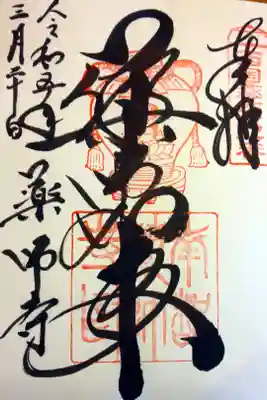 奉拝
薬師如来
令和五年
三月二十日
藥師寺